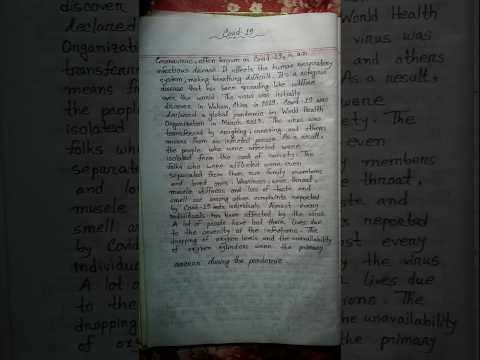 Covid-19
Coronavirus, often known as Covid-19, is an
infectious disease. It affects the human respiratory
system, making breathing difficult. It's a
disease that has been spreading like wildfire
over the world. The virus was initially
discover in Wuhan, China in 2019. Covid-19 was
declared a global pandemic by World Health
Organization in March. The virus was
transferred by and others
means from an infected people. As a result,
the people who were affected were
isolated from the rest of society. The
folks who were afflicted were even
separated from their own family members
and loved ones. sore throat,
muscle stiffness and loss of taste and
smell are among other complaints reported
by Covid-19 individuals. Almost every
individuals has been affected by the virus.
A lot of people have lost their lives due
to the severity of the. The
dropping of oxygen levels and the unavailability
of oxygen cylinders were the primary
during the pandemic